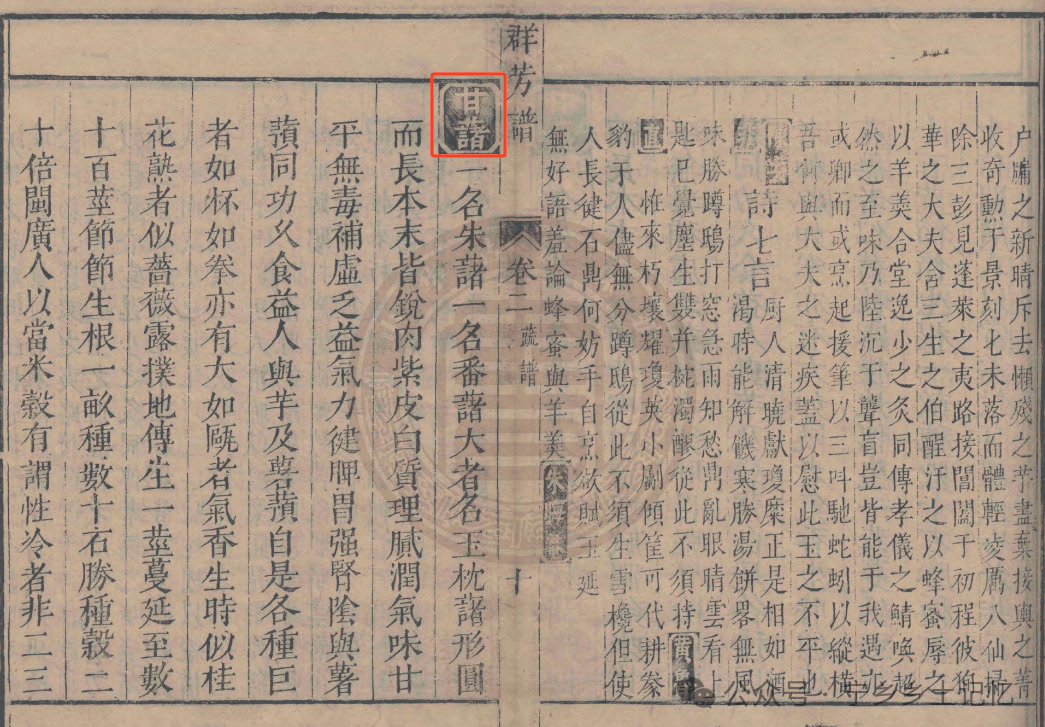 户牖之新晴斥去懶殘之芋盡棄接輿之菁
收奇勳于景刻七未落而體輕凌厲八仙掃
除三彭見蓬萊之夷路接閶闔于初程彼狗
華之大夫含三生之伯酲汙之以蜂蜜辱之
以羊羹合堂逸少之灸同傳孝儀之鯖喚起
然之至味乃陸沉于聾盲豈皆能于我遇亦
或卿而或烹起援筆以三叫馳蛇蚓以縱橫
吾何與大夫之迷疾蓋以慰此玉之不平也
詩七言 厨人清曉獻瓊糜正是相如酒
渴時能解饑寒勝湯餅畧無風
味勝蹲鴟打窓急雨知愁鼎亂眼晴雲看上
匙已覺塵生雙井椀濁醪從此不須持黃
直 惟來朽壤耀瓊英小劚傾筐可代耕豢
豹于人儘無分蹲鴟從此不須生雪欖但使
人長健石鼎何妨手自烹欲賦玉延
無好語羞論蜂蜜與羊羹朱
群芳譜 卷二 蔬譜 十
甘藷 一名朱藷一名番藷大者名玉枕藷形圓
而長本末皆銳肉紫皮白質理膩潤氣味甘
平無毒補虛乏益氣力健脾胃强腎陰與薯
蕷同功久食益人與芋及薯蕷自是各種巨
者如杯如拳亦有大如甌者氣香生時似桂
花熟者似薔薇露撲地傳生一莖蔓延至數
十百莖節節生根一畝種數十石勝種穀二
十倍閩廣人以當米穀有謂性冷者非二三
公众号·宁乡乡土记忆